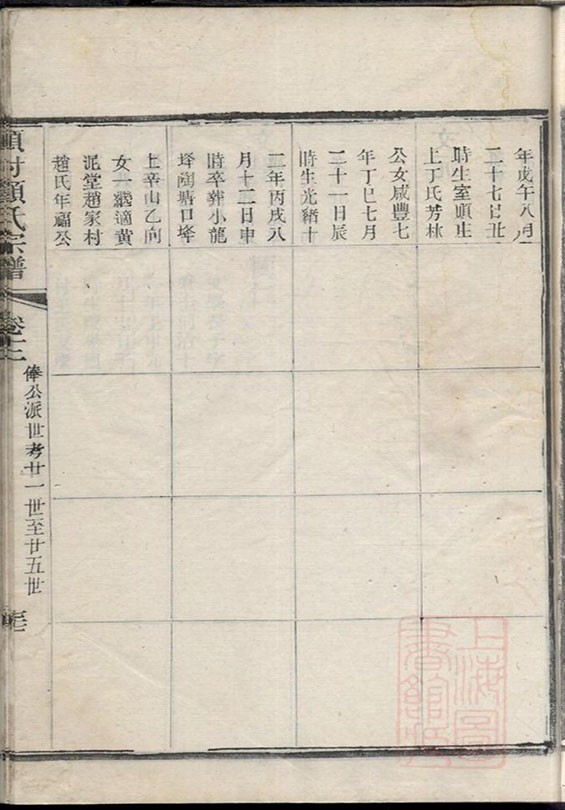 年戊午八月
二十七日丑
時生室頭庄
上丁氏芳林
公女咸豐七
年丁巳七月
二十一日辰
時生光緒十
二年丙戌八
月十二日申
時卒葬小龍
埄蘭塘口埄
上辛山乙向
女一繼適黃
泥堂趙家村
趙氏年福公
顏氏宗譜
卷十二
俸公派世考廿一世至廿五世
上海圖
書館藏